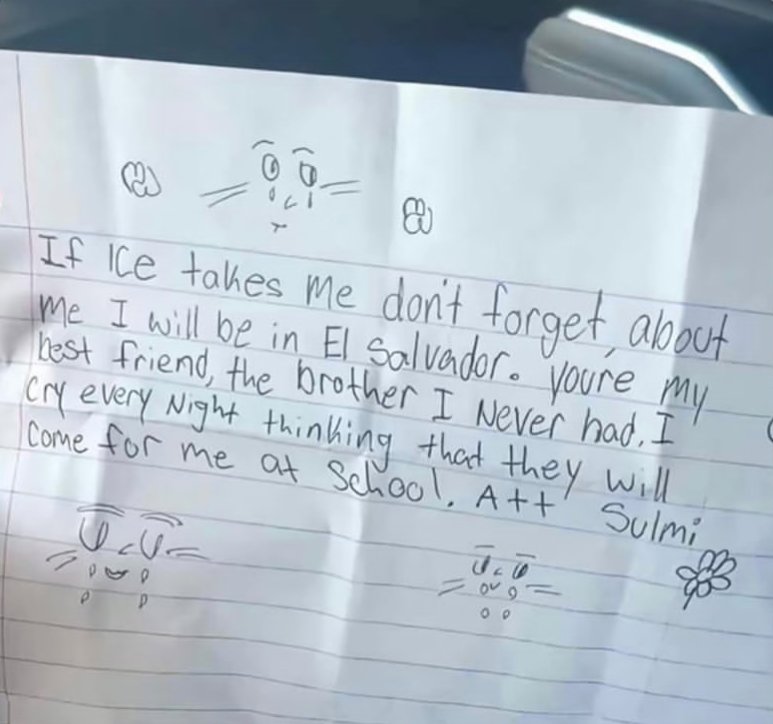 If Ice takes me don't forget about
me I will be in El Salvador. you're my
best friend, the brother I Never had. I
cry every Night thinking that they will
come for me at School. Att Sulmi